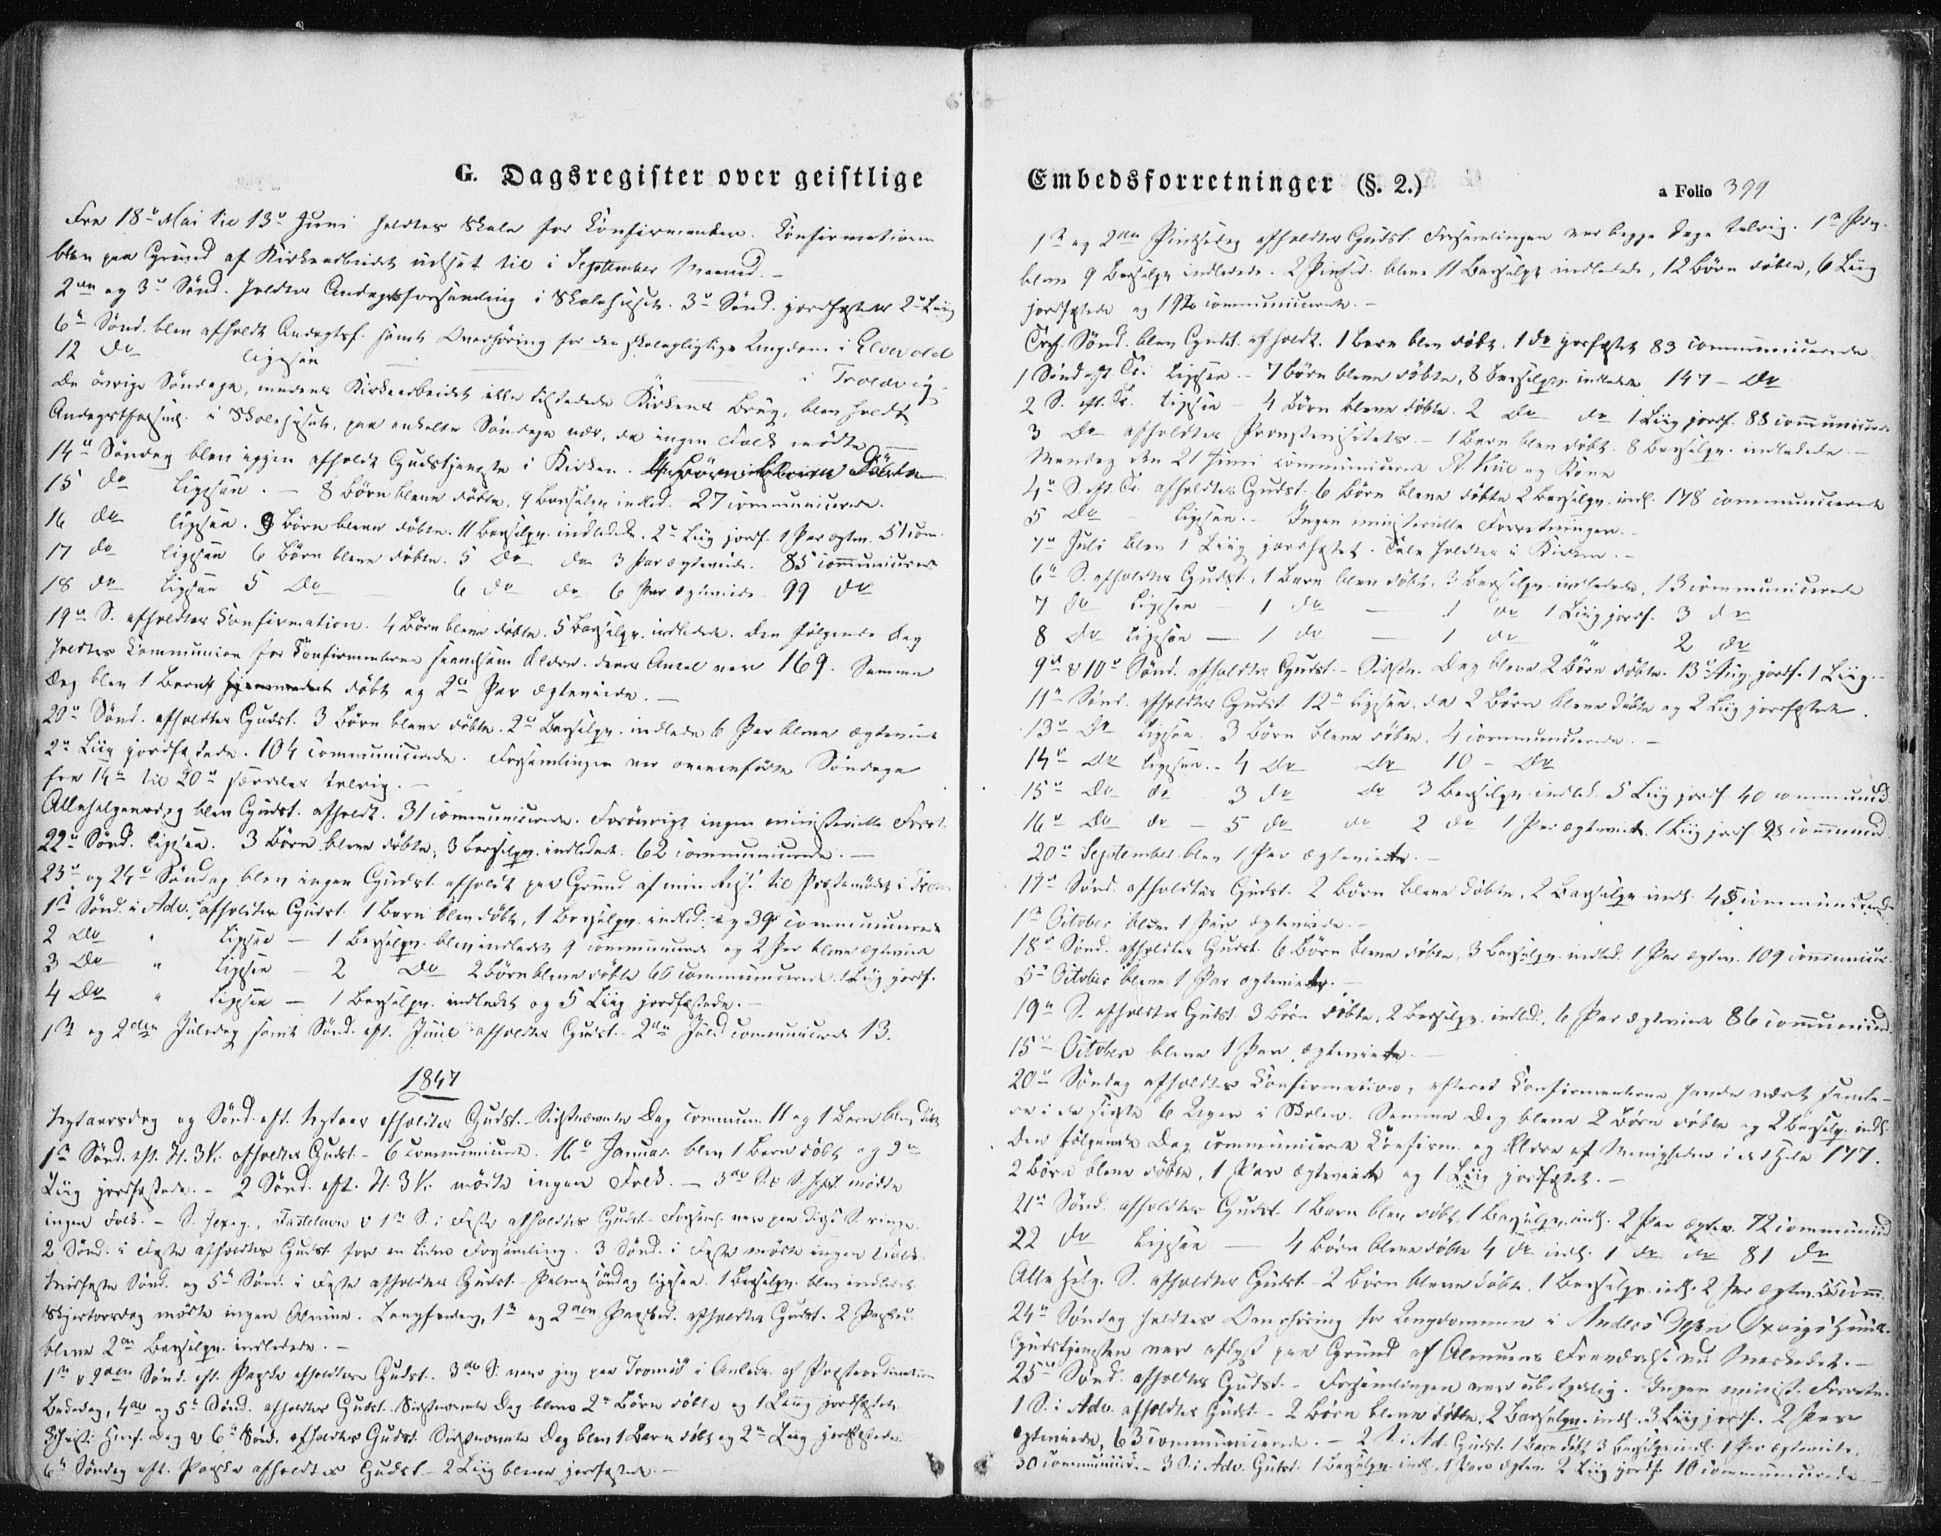 G. Dagsregister over geistlige
Fra 18de Mai til 13de Juni holdtes Skole for Confirmander. Confirmationen
blev paa Grund af Kirkearbeidet udsat til i September Maaned. –
2den og 3de Sønd. holdtes Andagtsforsamling i Skolehuset. 3de Sønd. jordfæstedes 2de Liig
6te Sønd. blev afholdt Andagtsf. samt Overhøring for den skolepligtige Ungdom i Elvevold
12 do ligesaa i Troldvig
De øvrige Søndage, medens Kirkearbeidet ikke tilstedede Kirkens Brug, blev holdt
Andagtsforsaml. i Skolehuset, paa enkelte Søndage nær, da ingen Folk mødte
14de Søndag blev igjen afholdt Gudstjeneste i Kirken.
15 do ligesaa. – 8 Børn bleve døbte, 9 Barselqv. indled. 27 communicerede.
16 do ligesaa. 9 Børn bleve døbte. 11 Barselqv. indledede. 2de Liig jordf. 1 Par ægtev. 51 com.
17 do ligesaa 6 Børn bleve døbte. 5 do do 3 Par ægteviede. 85 communicerede
18 do ligesaa 5 do 6 do do 6 Par ægteviede. 99 do
19de S. afholdtes Confirmation. 4 Børn bleve døbte. 5 Barselqv. indledede. Den følgende Dag
holdtes Communion for Confirmanterne Antal var 169. Samme
Dag blev 1 Barn døbt og 2de Par ægteviede. –
20de Sønd. afholdtes Gudst. 3 Børn bleve døbte. 2de Barselqv. indledede 6 Par bleve ægteviede
2de Liig jordfæstede. 104 communicerede. Forsamlingen var ovennævnte Søndage
fra 14de til 20de særdeles talrig. –
Allehelgensdag blev Gudst. afholdt. 31 communicerede. Forøvrigt ingen ministerielle Forr.
22de Sønd. ligesaa. 3 Børn bleve døbte, 3 Barselqv. indledede. 62 communicerede. –
23de og 24de Søndag blev ingen Gudst. afholdt paa Grund af min Reise til Præstemødet i Trom
1ste Sønd. i Adv. afholdtes Gudst. 1 Barn blev døbt, 1 Barselqv. indled. og 39 communicerede
2 do " ligesaa – 1 Barselqv. blev indledet 9 communicerede og 2 Par bleve ægteviede
3 do " ligesaa – 2 do 2 Børn bleve døbte 66 communicerede. 1 Liig jordf.
4 do " ligesaa – 1 Barselqv. indledet og 5 Liig jordfæstede. –
1ste og 2den Juledag samt Sønd. eft. Juul afholdtes Gudst. – 2den Juled. communicerede 13.
1847
Nytaarsdag og Sønd. eft. Nytaar afholdtes Gudst. – Sidstnævnte Dag commun. 11 og 1 Barn blev døbt
1ste Sønd. eft. H. 3 K. afholdtes Gudst. – 6 communicerede. 16de Januar blev 1 Barn døbt og 2de
Liig jordfæstede. – 2 Sønd. eft. H. 3 K. mødte ingen Folk. – 3die mødte
ingen Folk. – S. Sexag., Fastelavn & 1ste S. i Faste afholdtes Gudst. Forsaml. var paa disse S. ringe
2 Sønd. i Faste afholdtes Gudst. for en liden Forsamling. 3 Sønd. i Faste mødte ingen Folk.
Midfaste Sønd. og 5te Sønd. i Faste afholdtes Gudst. – Palmesøndag ligesaa. 1 Barselqv. blev indledet
Skjertorsdag mødte ingen Almue. Langfredag, 1ste og 2den Paasked. afholdtes Gudst. 2 Paasked.
bleve 2de Barselqv. indledede. –
1ste & 2den Sønd. eft. Paaske afholdtes Gudst. 3die S. var jeg paa Tromsø i Anledn. af Præsteordination
Bededag, 4de og 5te Sønd. afholdtes Gudst. Sidstnævnte Dag bleve 2de Børn døbte og 1 Liig jordfæstet.
Christi Himf. Dag & 6te Sønd. afholdtes Gudst. Sidstnævnte Dag blev 1 Barn døbt og 2de Liig jordfæstede.
6te Søndag eft. Paaske afholdtes Gudst – 2 Liig bleve jordfæstede. –
Embedsforretninger (§. 2.)
a Folio 399
1ste og 2den Pintsedag afholdtes Gudst. Forsamlingen var begge Dage talrig. 1ste Pdag
bleve 9 Barselqv. indledede. 2 Pintsed. bleve 11 Barselqv. indledede, 12 Børn døbte, 6 Liig
jordfæstede og communicerede. –
Tref. Sønd. blev Gudst. afholdt. 1 Barn blev døbt. 1 do jordfæstet 83 communicerede
1 Sønd. eft. Tr. ligesaa. – 7 Børn bleve døbte, 8 Barselqv. indledede 147 – do
2 S. eft. Tr. ligesaa – 4 Børn bleve døbte. 2 do do 1 Liig jordf. 88 communicerede
3 do afholdtes Provstevisitats. – 1 Barn blev døbt. 8 Barselqv. indledede. –
Mandag den 21 Juni communicerede og Kone
4de S. eft. Tr. afholdtes Gudst. 6 Børn bleve døbte 2 Barselqv. indl. 178 communicerede
5 do ligesaa. – Ingen ministerielle Forretninger. –
7de Juli blev 1 Liig jordfæstet. Tale holdtes i Kirken. –
6te S. afholdtes Gudst. 1 Barn blev døbt, 3 Barselqv. indledede, 13 communicerede
7 do ligesaa – 1 do – 1 do 1 Liig jordf. 3 do
8 do ligesaa – 1 do – 1 do " 2 do
9de & 10de Sønd. afholdtes Gudst. – Sidstn. Dag bleve 2 Børn døbte. 13de Aug. jordf. 1 Liig. –
11te Sønd. afholdtes Gudst. 12te ligesaa, da 2 Børn bleve døbte og 2 Liig jordfæstede.
13de do ligesaa. 3 Børn bleve døbte. 4 communicerede. –
14de do ligesaa. – 4 do do 10 – do
15de do do 3 do do 3 Barselqv. indled. 5 Liig jordf. 40 communiced.
16de do do – 5 do do 2 do 1 Par ægteviet. 1 Liig jordf. 28 communiced.
20de September blev 1 Par ægteviet. –
17de Sønd. afholdtes Gudst. 2 Børn bleve døbte, 2 Barselqv. indl. 48 communicerede
1ste October blev 1 Par ægteviede. –
18de Sønd. afholdtes Gudst. 6 Børn bleve døbte, 3 Barselqv. indled. 1 Par ægtev. 109 communicer.
5te October bleve 1 Par ægteviede. –
19de S. afholdtes Gudst. 3 Børn døbte, 2 Barselqv. indled., 6 Par ægteviede 86 communicered.
15de October bleve 1 Par ægteviede. –
20de Søndag afholdtes Confirmation, efterat Confirmanterne havde været samle-
de i de sidste 6 Uger i Skolen. Samme Dag bleve 2 Børn døbte og 2 Barselqv. indl.
Den følgende Dag communicerede Confirm. og Ældre af Menigheden i det Hele 177.
2 Børn bleve døbte, 1 Par ægteviede og 1 Liig jordfæstet. –
21de Sønd. afholdtes Gudst. 1 Barn blev døbt, 1 Barselqv. indl. 2 Par ægtev. 72 communiced
22 do ligesaa – 4 Børn bleve døbte 4 do indl. 1 do do 81 do
Alle Helg. S. afholdtes Gudst. – 2 Børn bleve døbte. 1 Barselqv. indl. 2 Par ægtev. comm.
24de Søndag holdtes Overhøring for Ungdommen i Anders
Gudstjenesten var aflyst paa Grund af Almuens Fraværelse ved Markedet. –
25de Sønd. afholdtes Gudst. – Forsamlingen var ubetydelig. Ingen minist. Forretn.
1 S. i Adv. afholdtes Gudst. – 2 Børn bleve døbte, 2 Barselqv. indl. 3 Liig jordf. 2 Par
ægteviede, 63 communicerede. – 2 S. i Ad. Gudst. 1 Barn døbt 3 Barselqv. indl. 1 Par ægteviede,
30 communicered. – 3 S. i Adv. Gudst. 1 Barselqv. indl. 1 Par ægtev. 2 Liig jordf. 10 communicerede